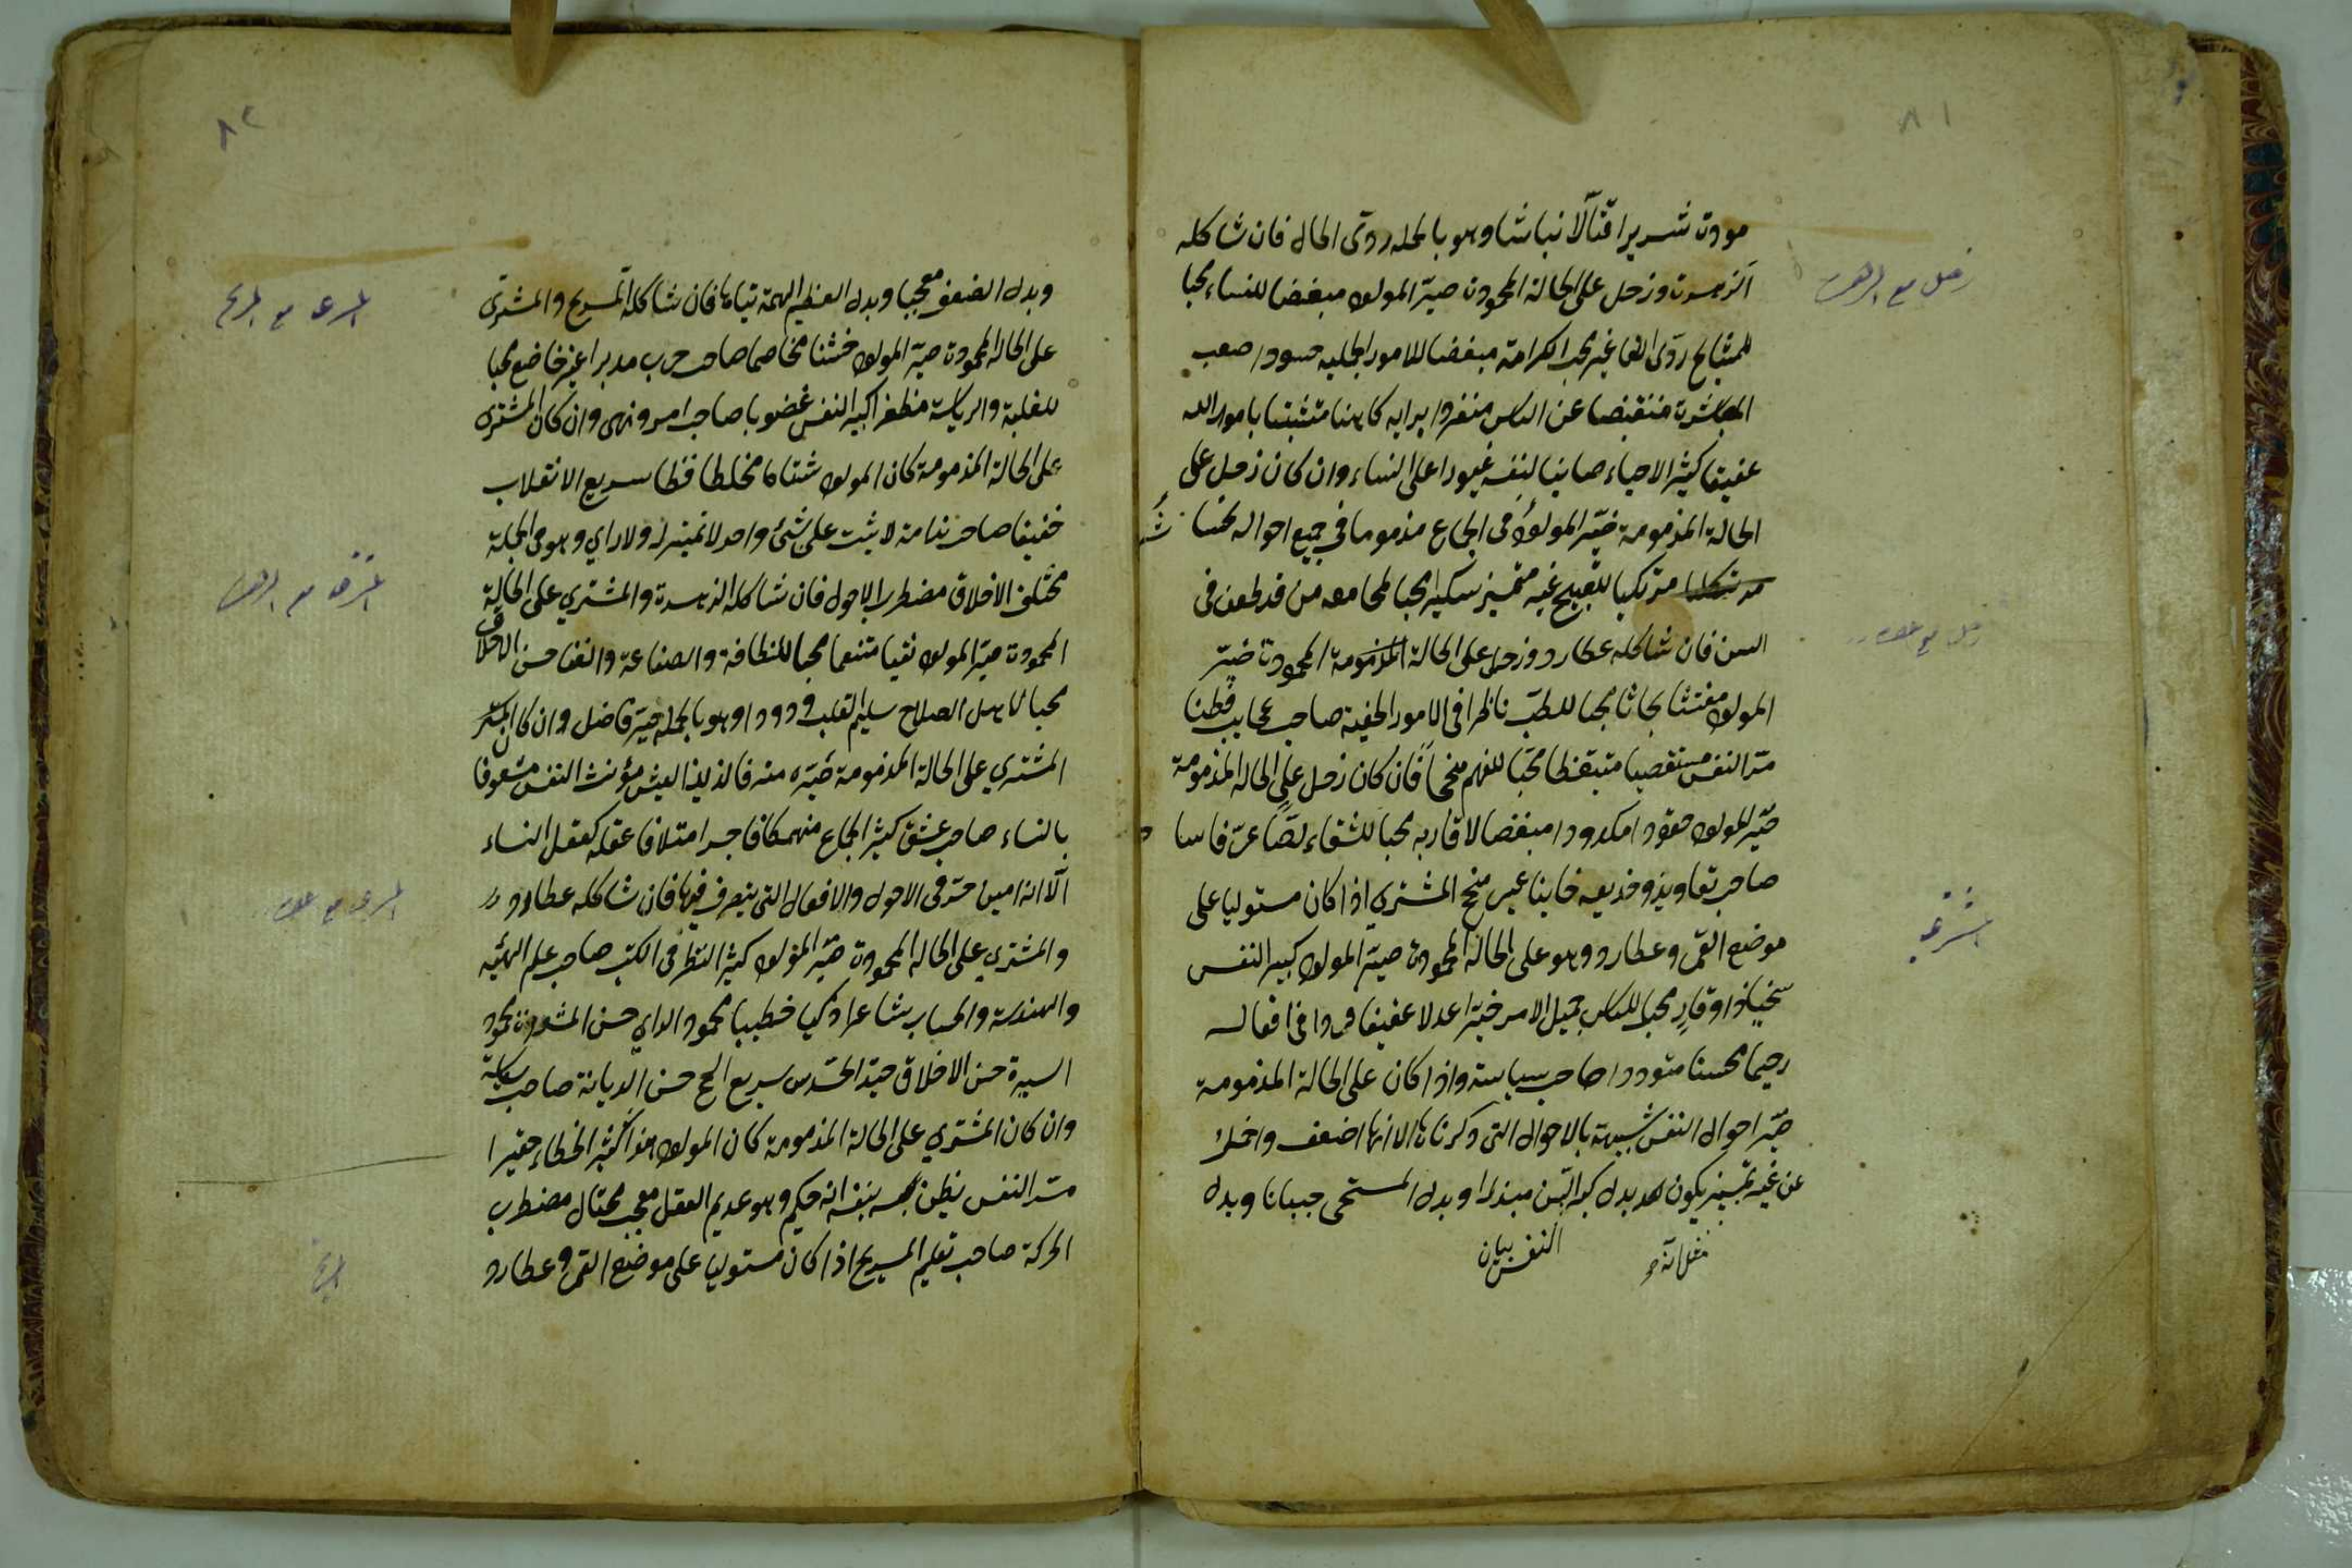 ٨١
مودة شريرا قتآلا نباشا وهو بالجمله ردى الحال فان شاكله
الزهرة وزحل على الحالة المحمودة صيّر المولود مبغضا للنساء محبا
للمشايخ ردى اللقا غير محب الكرامة مبغضا للامور الجليه حسودا صعب
المعاشرت منقبضا عن الناس منفردا برايه كاهنا متشبثا بامور الله
عفيفا كثير الاحياء صاينا لنفسه غيورا على النساء وان كان زحل على
الحالة المذمومة صيّر المولود فى الجماع مذموما فى جميع احواله نجسا
مرتكبا للقبيح غير متميز سكيرا محبا لمجامعه من قد طعن فى
السن فان شاكله عطارد وزحل على الحالة المذمومة المحمودة صيّر
المولود مفتشا بحاثا محبا للطب ناظرا فى الامور الخفية صاحب عجايب فطنا
مر النفس مستقصيا متيقظا محبا للفهم فان كان زحل على الحاله المذمومة
صيّر المولود حقودا مكدودا مبغضا لاقاربه محبا للشقاء لصّا
صاحب تعاويذ وخديعه خاينا المشترى اذا كان مستوليا على
موضع القمر وعطارد وهو على الحالة المحمودة صيّر المولود كبير النفس
سخيا ذا وقار محبا للناس جميل الامر خيّرا عدلا عفيفا فى افعاله
رحيما محسنا متوددا صاحب سياسة واذا كان على الحالة المذمومة
صيّر احوال النفس شبيهة بالاحوال التى ذكرناها الا انها اضعف
عن غير تميز يكون بدل كبر النفس مبذرا وبدل المستحى جبانا وبدل
زحل مع الزهرة
زحل مع عطارد
المشترى
٨٢
وبدل الضعف معجبا وبدل العظيم الهمة تياها فان شاكله المريخ والمشترى
على الحالة المحمودة صيّر المولود خشنا مخاصما صاحب حرب مدبرا غير خاضع محبا
للغلبة والرياسة مظفرا كبير النفس غضوبا صاحب امر ونهى وان كان المشترى
على الحالة المذمومة كان المولود شتاما مخلطا فظا سريع الانقلاب
خفيفا صاحب ندامة لا يثبت على شئ واحد لا تميز له ولا راي وهو فى الجملة
مختلف الاخلاق مضطرب الاحوال فان شاكله الزهرة والمشتري على الحالة
المحمودة صيّر المولود نقيا متنعما محبا للنظافة والصناعة والغنا حسن الاخلاق
محبا لاهل الصلاح سليم القلب ودودا وهو بالجملة خيّر فاضل وان كان
المشتري على الحالة المذمومة صيّره مترفا لذيذ العيش مؤنث النفس مشعوفا
بالنساء صاحب عشق كثير الجماع منهمكا فاجرا متلافا عقله كعقل النساء
الّا انه امين حر فى الاحوال والافعال التى يتصرف فيها فان شاكله عطارد
والمشتري على الحالة المحمودة صيّر المولود كثير النظر فى الكتب صاحب علم الهيئة
والهندسة والحساب شاعرا ذكيا خطيبا محمود الراي حسن المشورة محمود
السيرة حسن الاخلاق جيد الحدس سريع حسن الديانة صاحب سياسة
وان كان المشتري على الحالة المذمومة كان المولود هذرا كثير الخطاء حقيرا
مر النفس يظن بنفسه انه حكيم وهو عديم العقل معجب محتال مضطرب
الحركة صاحب تعليم المريخ اذا كان مستوليا على موضع القمر وعطارد
المشترى مع المريخ
المشترى مع الزهرة
المشترى مع عطارد
المريخ